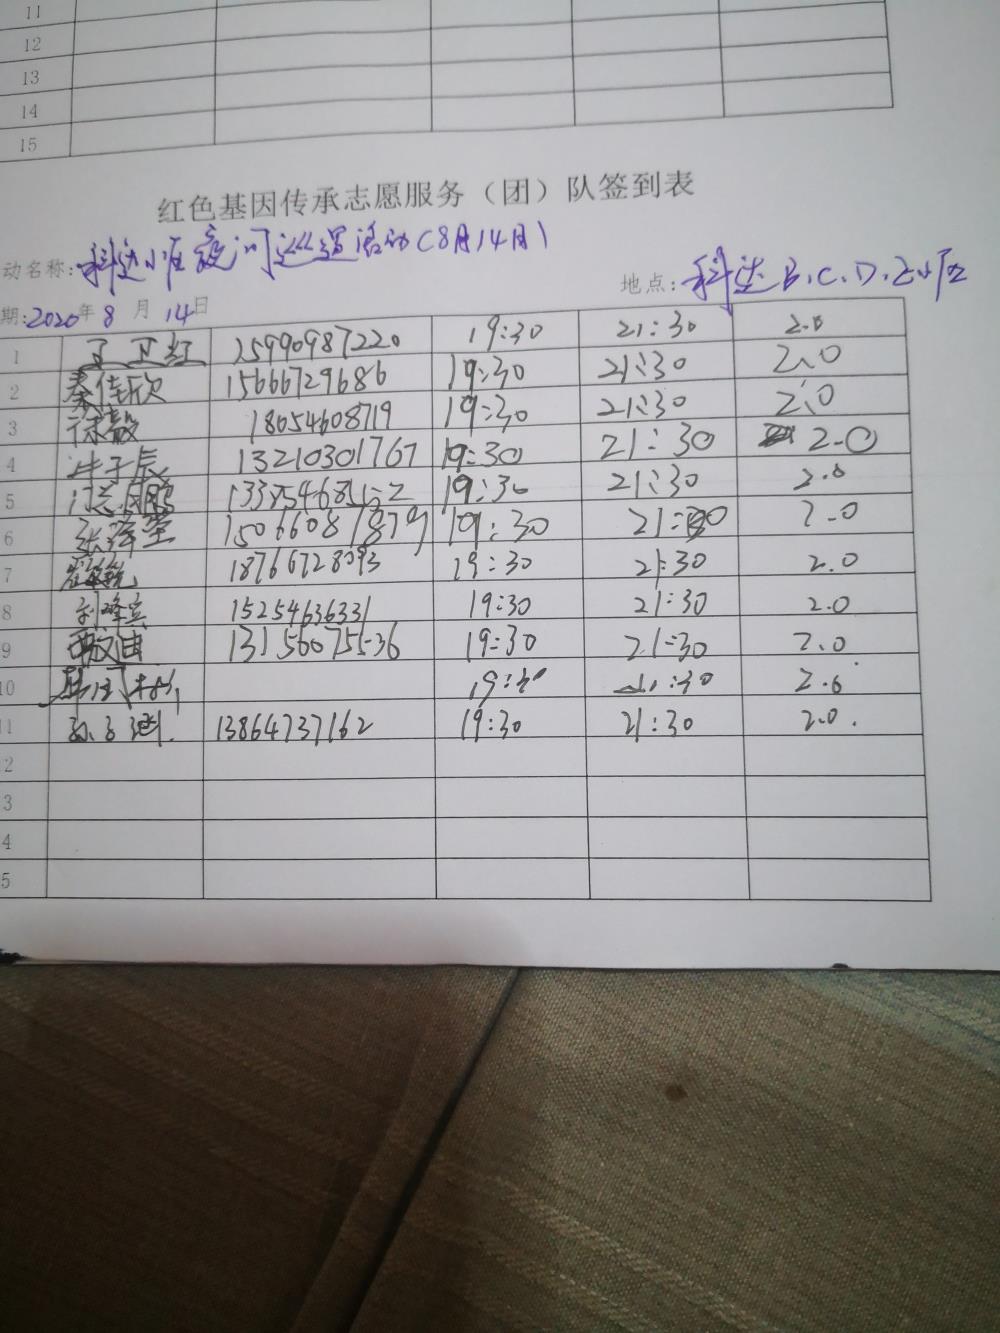 11
12
13
14
15
红色基因传承志愿服务（团）队签到表
动名称：科达小区夜间巡逻活动（8月14日）
地点：科达B.C.D.E小区
期：2020年8月14日
1 丁卫红 15990987220 19:30 21:30 2.0
2 秦佳欣 15666729686 19:30 21:30 2.0
3 徐毅 18054608719 19:30 21:30 2.0
4 子辰 13210301767 19:30 21:30 2.0
5 19:30 21:30 2.0
6 张泽莹 15066081879 19:30 21:30 2.0
7 18766728093 19:30 21:30 2.0
8 刘峰兵 15254636331 19:30 21:30 2.0
9 13156075536 19:30 21:30 2.0
10 19:30 21:30 2.0
11 孙 13864737162 19:30 21:30 2.0.
2
3
4
5